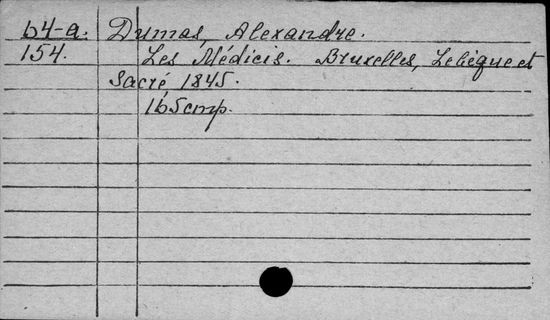 b4-a. Dumas, Alexandre.
154. Les Médicis. Bruxelles, Lebègue et
Sacré, 1845.
16.5 cmp.